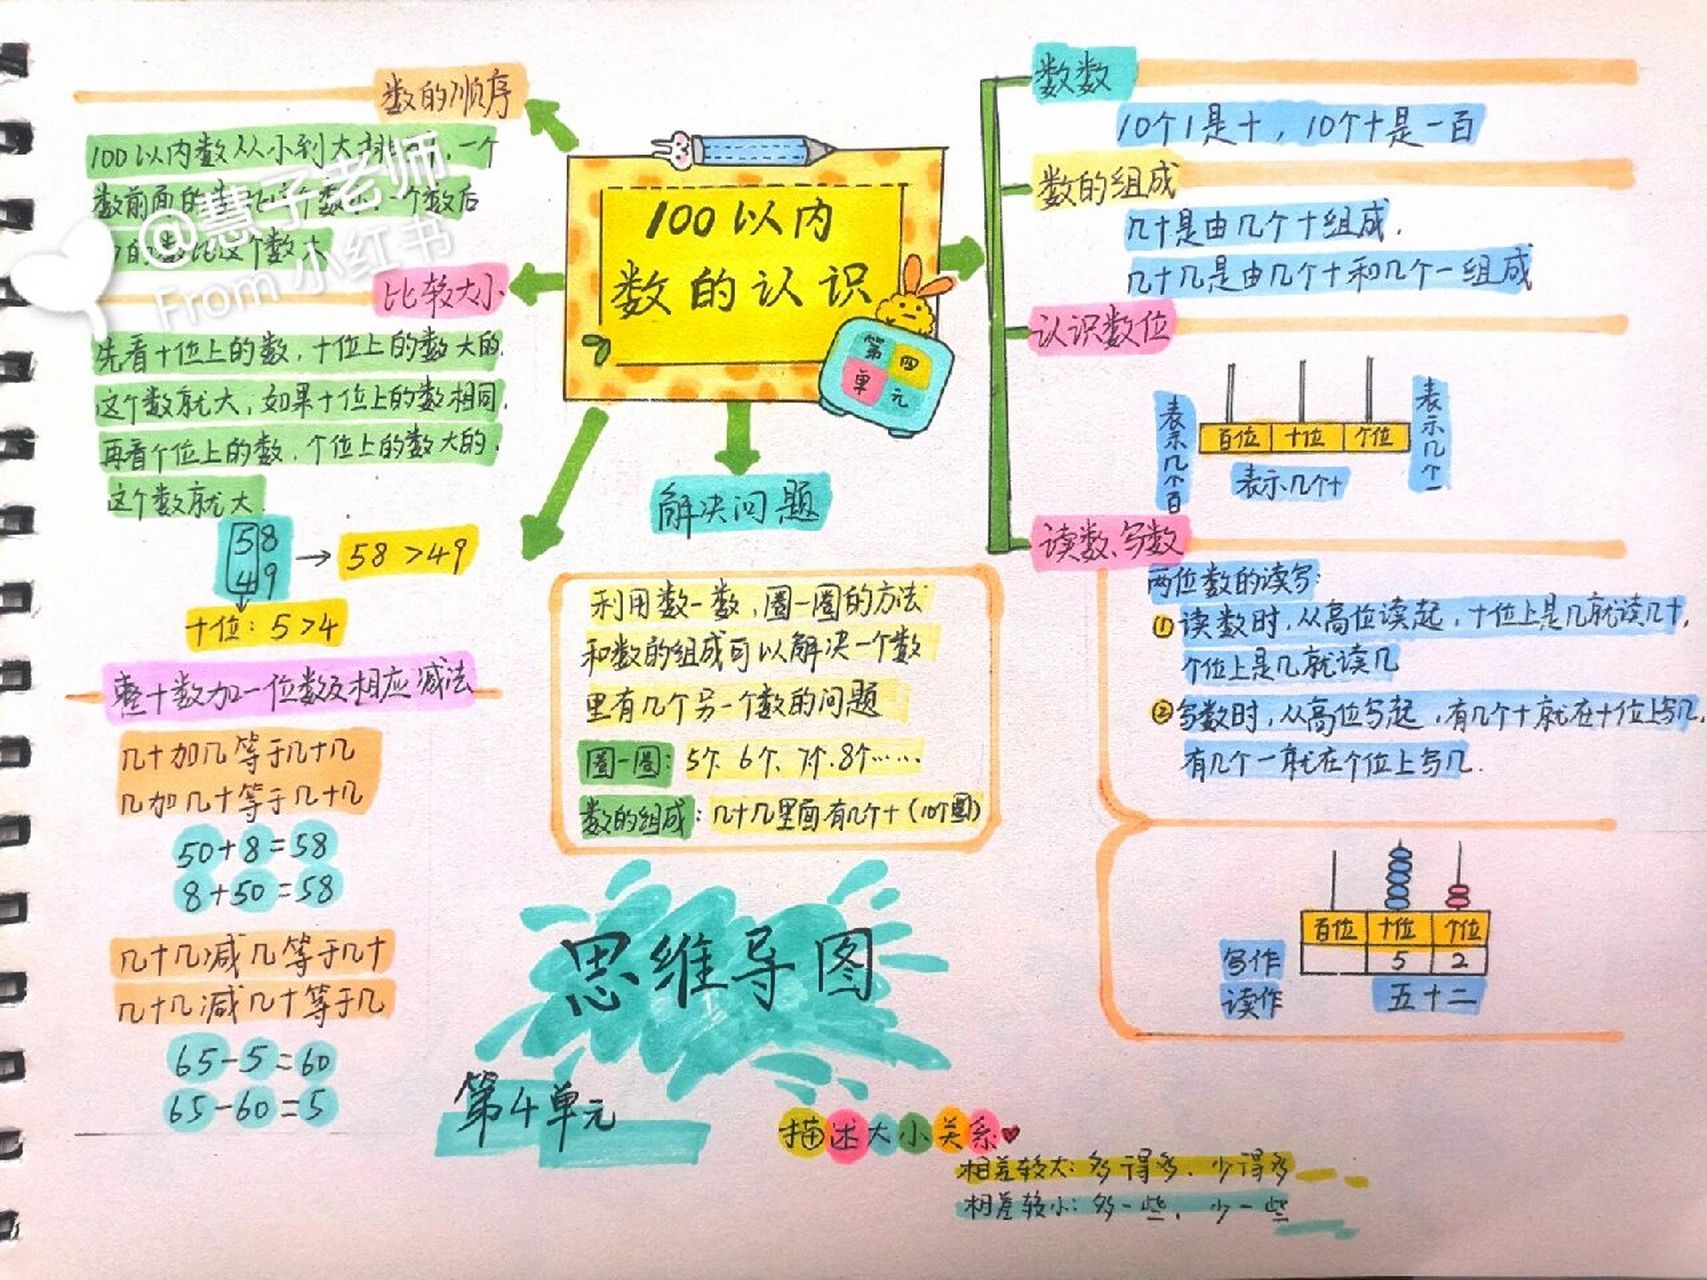 100以内
数的认识
第四
单元
数的顺序
100以内数从小到大排列,一个
数前面的数比这个数小,一个数后
的数比这个数大
@慧子老师
From 小红书
比较大小
先看十位上的数,十位上的数大的,
这个数就大,如果十位上的数相同,
再看个位上的数,个位上的数大的,
这个数就大
58
49
→ 58>49
十位:5>4
整十数加一位数及相应减法
几十加几等于几十几
几加几十等于几十几
50+8=58
8+50=58
几十几减几等于几十
几十几减几十等于几
65-5=60
65-60=5
解决问题
利用数一数,圈一圈的方法
和数的组成可以解决一个数
里有几个另一个数的问题
圈一圈:5个、6个、7个、8个……
数的组成:几十几里面有几个十(10个圈)
思维导图
第4单元
描述大小关系
相差较大:多得多、少得多
相差较小:多一些、少一些
数数
10个1是十,10个十是一百
数的组成
几十是由几个十组成.
几十几是由几个十和几个一组成
认识数位
百位 十位 个位
表示几个百
表示几个十
表示几个一
读数、写数
两位数的读写:
①读数时,从高位读起,十位上是几就读几十,
个位上是几就读几
②写数时,从高位写起,有几个十就在十位上写几,
有几个一就在个位上写几.
百位 十位 个位
写作 5 2
读作 五十二